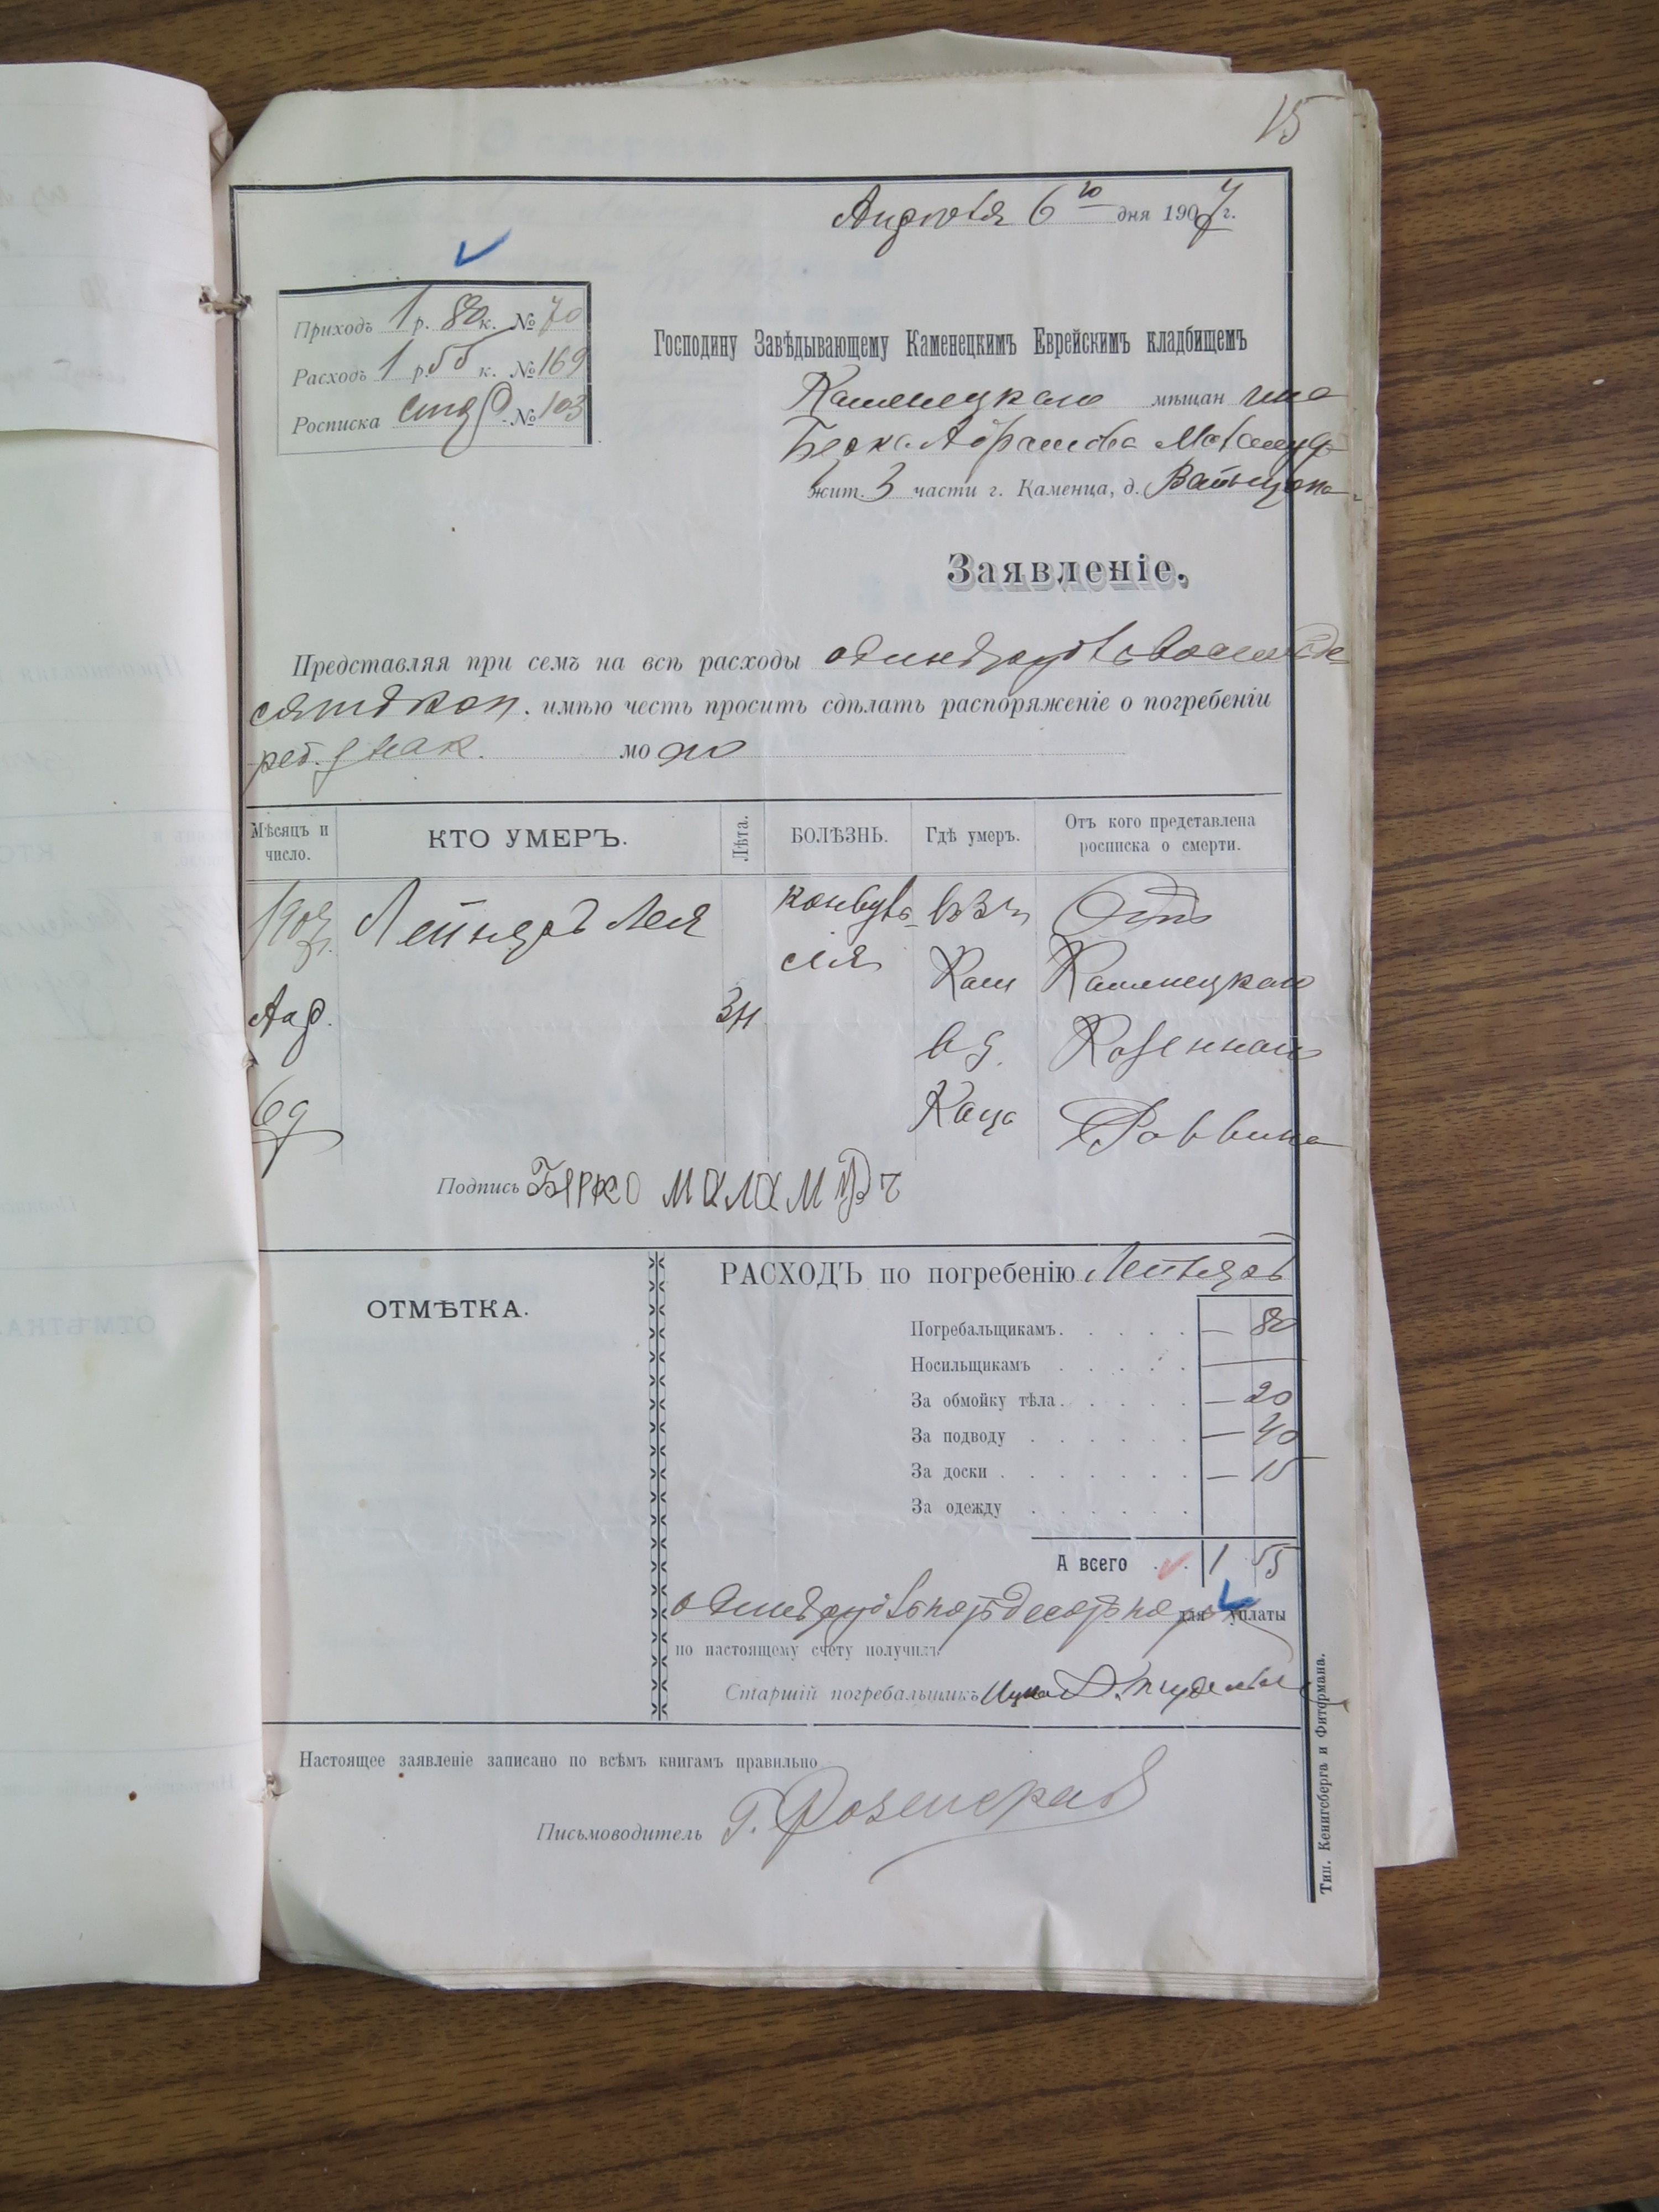 15
Апреля 6го дня 1907 г.
Приходъ 1 р. 80 к. № 70
Расходъ 1 р. 55 к. № 169
Росписка № 103
Господину Завѣдывающему Каменецкимъ Еврейскимъ кладбищемъ
Каменецкаго мѣщанина
Берка Абрамова
жит. 3 части г. Каменца, д.
Заявленіе.
Представляя при семъ на всѣ расходы одинъ рубль восемьде
сятъ коп. имѣю честь просить сдѣлать распоряженіе о погребеніи
мо
Мѣсяцъ и число.
КТО УМЕРЪ.
Лѣта.
БОЛѢЗНЬ.
Гдѣ умеръ.
Отъ кого представлена росписка о смерти.
1907 г.
Апр.
6 д
Лейнеръ Лея
3 н
конвуль
сія
въ 3 ч
Кам
в д.
Каца
Отъ
Каменецкаго
Казеннаго
Раввина
Подпись Берко Маламуд
РАСХОДЪ по погребенію Лейнеръ
ОТМѢТКА.
Погребальщикамъ — 80
Носильщикамъ —
За обмойку тѣла — 20
За подводу — 40
За доски — 15
За одежду
А всего 1 55
одинъ рубль пятьдесятъ для уплаты
по настоящему счету получилъ
Старшій погребальщикъ
Настоящее заявленіе записано по всѣмъ книгамъ правильно
Письмоводитель Г.
Тип. Кенигсберга и Фитермана.